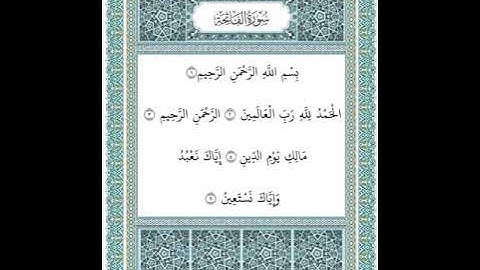 سُورَةُ الْفَاتِحَةِ
بِسْمِ اللَّهِ الرَّحْمَنِ الرَّحِيمِ ١
الْحَمْدُ لِلَّهِ رَبِّ الْعَالَمِينَ ٢ الرَّحْمَنِ الرَّحِيمِ ٣
مَالِكِ يَوْمِ الدِّينِ ٤ إِيَّاكَ نَعْبُدُ
وَإِيَّاكَ نَسْتَعِينُ ٥